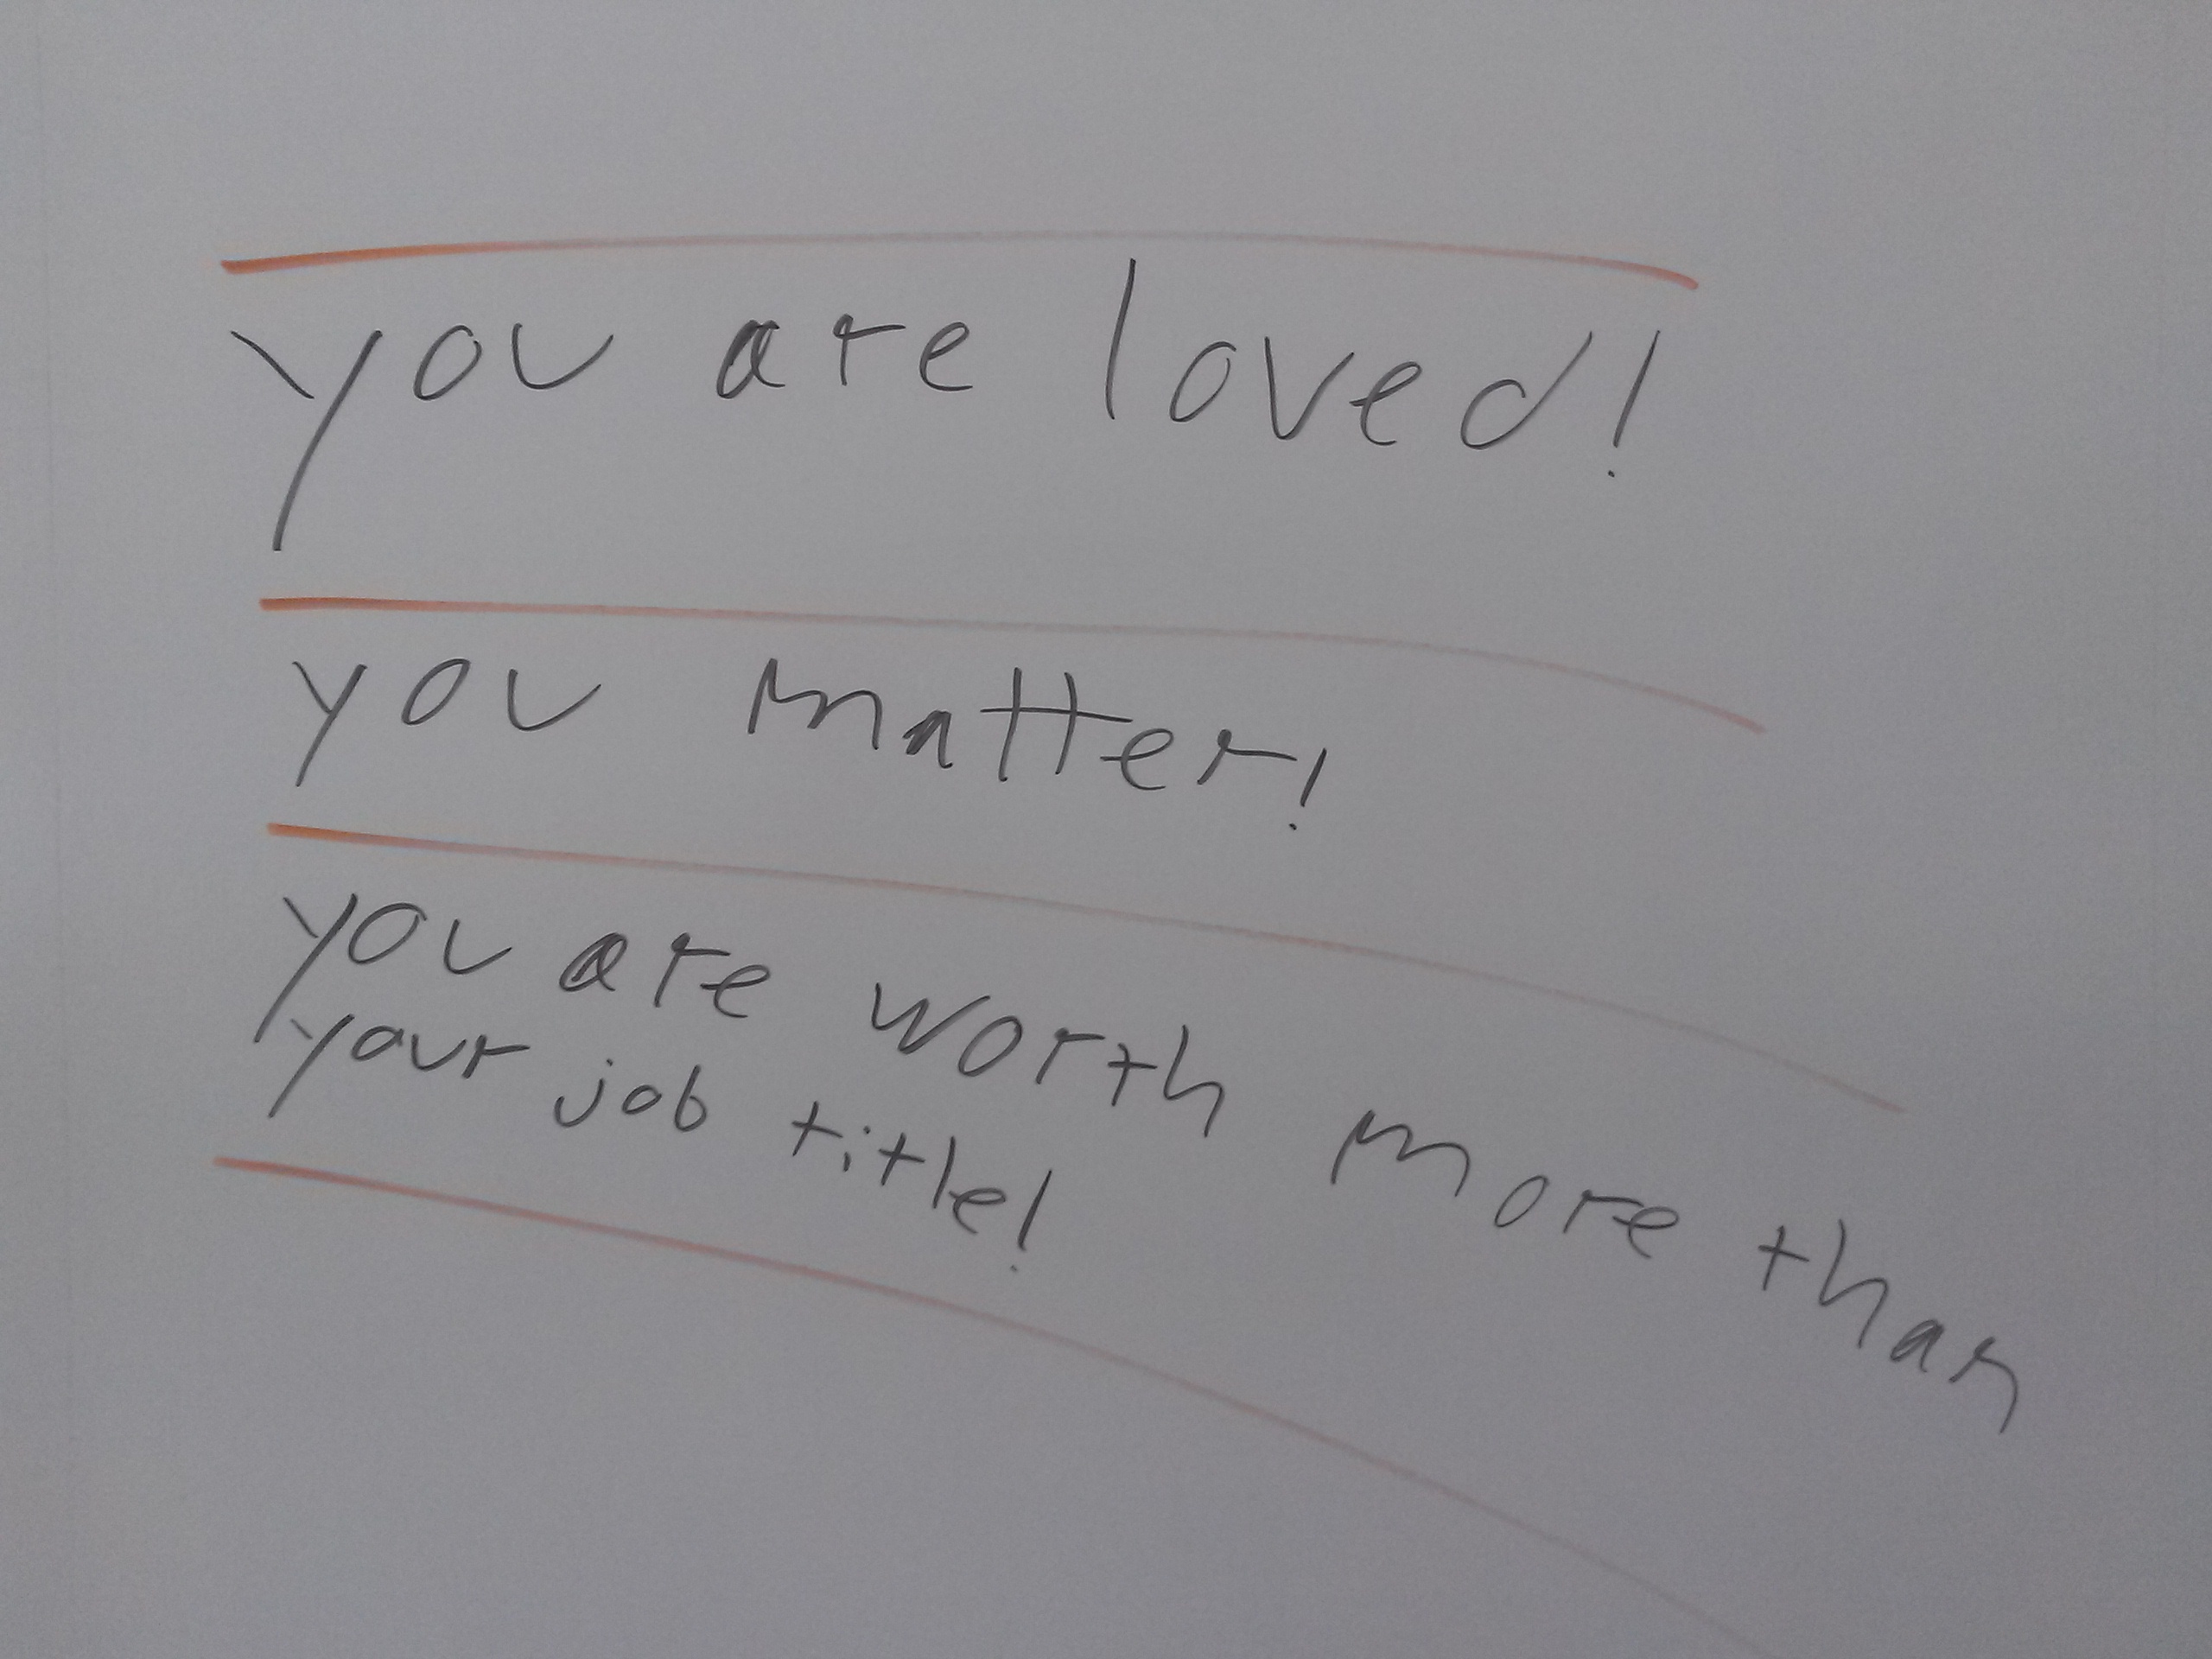 you are loved!
you matter!
you are worth more than
your job title!